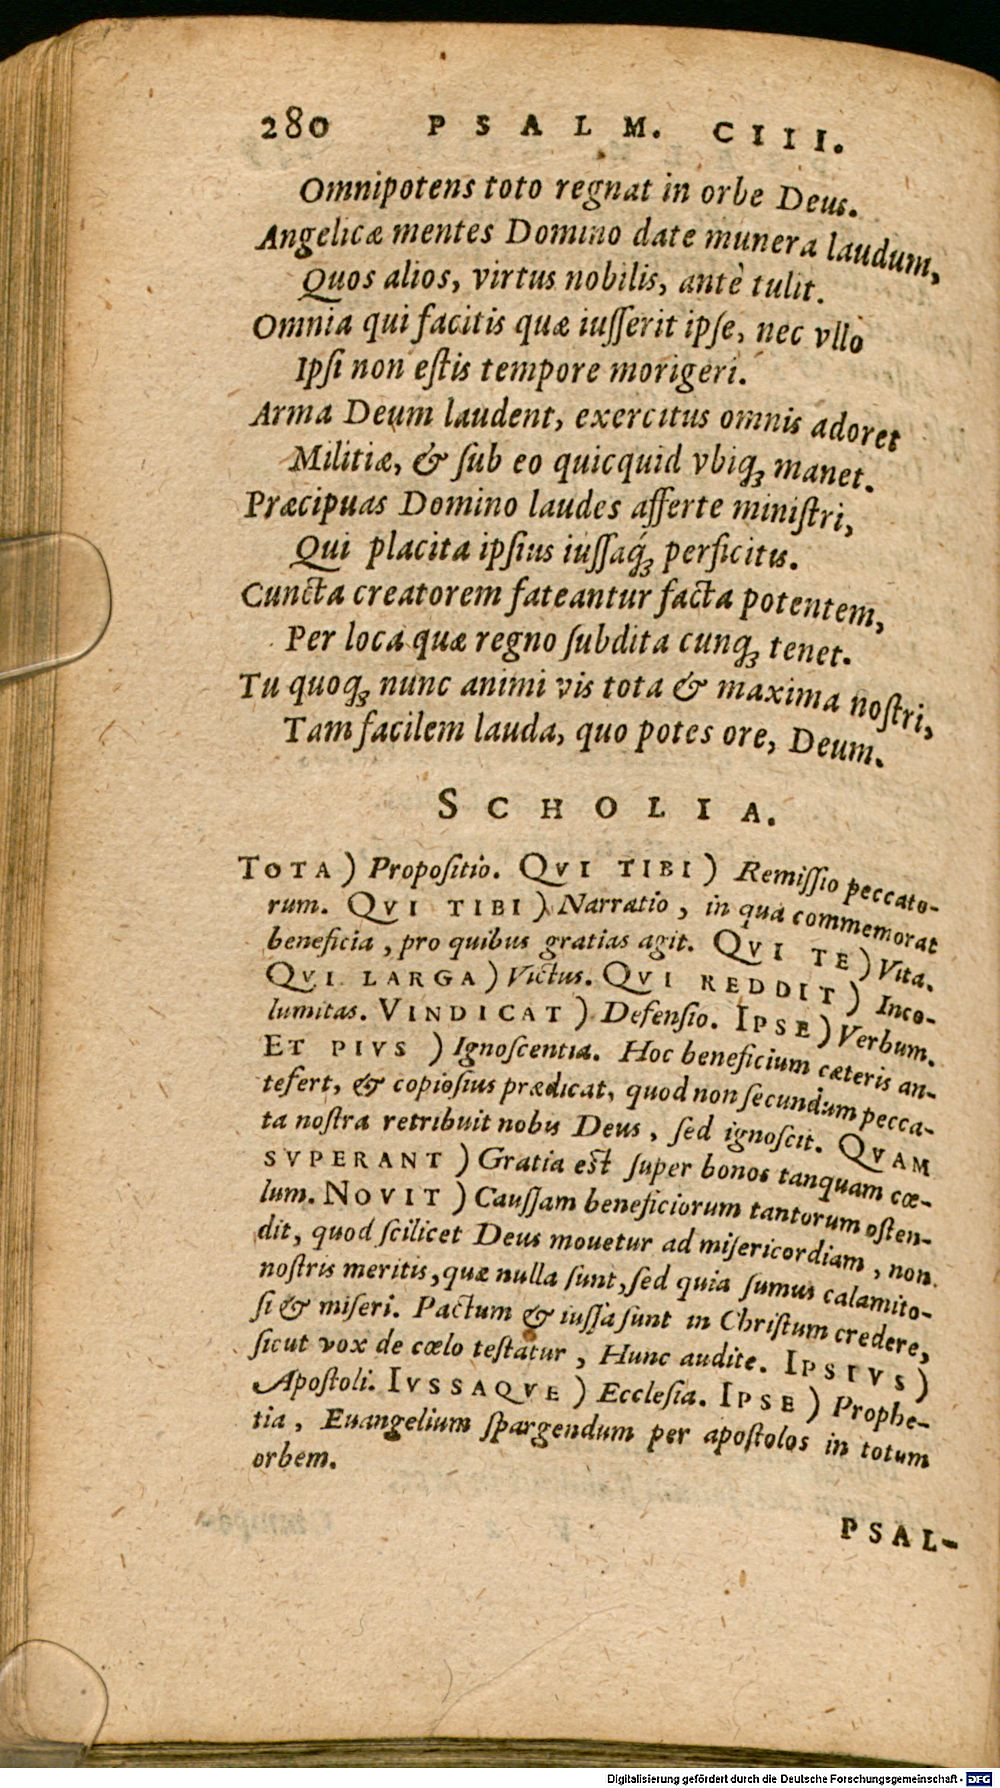 280 PSALM. CIII.
Omnipotens toto regnat in orbe Deus.
Angelicæ mentes Domino date munera laudum,
Quos alios, virtus nobilis, antè tulit.
Omnia qui facitis quæ iuſſerit ipſe, nec vllo
Ipſi non eſtis tempore morigeri.
Arma Deum laudent, exercitus omnis adoret
Militiæ, & ſub eo quicquid vbiqꝫ manet.
Præcipuas Domino laudes afferte miniſtri,
Qui placita ipſius iuſſaq́ꝫ perficitis.
Cuncta creatorem fateantur facta potentem,
Per loca quæ regno ſubdita cunqꝫ tenet.
Tu quoqꝫ nunc animi vis tota & maxima noſtri,
Tam facilem lauda, quo potes ore, Deum.
SCHOLIA.
TOTA) Propoſitio. QVI TIBI) Remiſſio peccato-
rum. QVI TIBI) Narratio, in qua commemorat
beneficia, pro quibus gratias agit. QVI TE) Vita.
QVI LARGA) Victus. QVI REDDIT) Inco-
lumitas. VINDICAT) Defenſio. IPSE) Verbum.
ET PIVS) Ignoſcentia. Hoc beneficium cæteris an-
tefert, & copioſius prædicat, quod non ſecundum pecca-
ta noſtra retribuit nobis Deus, ſed ignoſcit. QVAM
SVPERANT) Gratia eſt ſuper bonos tanquam cœ-
lum. NOVIT) Cauſſam beneficiorum tantorum oſten-
dit, quod ſcilicet Deus mouetur ad miſericordiam, non
noſtris meritis, quæ nulla ſunt, ſed quia ſumus calamito-
ſi & miſeri. Pactum & iuſſa ſunt in Chriſtum credere,
ſicut vox de cœlo teſtatur, Hunc audite. IPSIVS)
Apoſtoli. IVSSAQVE) Eccleſia. IPSE) Prophe-
tia, Euangelium ſpargendum per apoſtolos in totum
orbem.
PSAL-
Digitalisierung gefördert durch die Deutsche Forschungsgemeinschaft - DFG